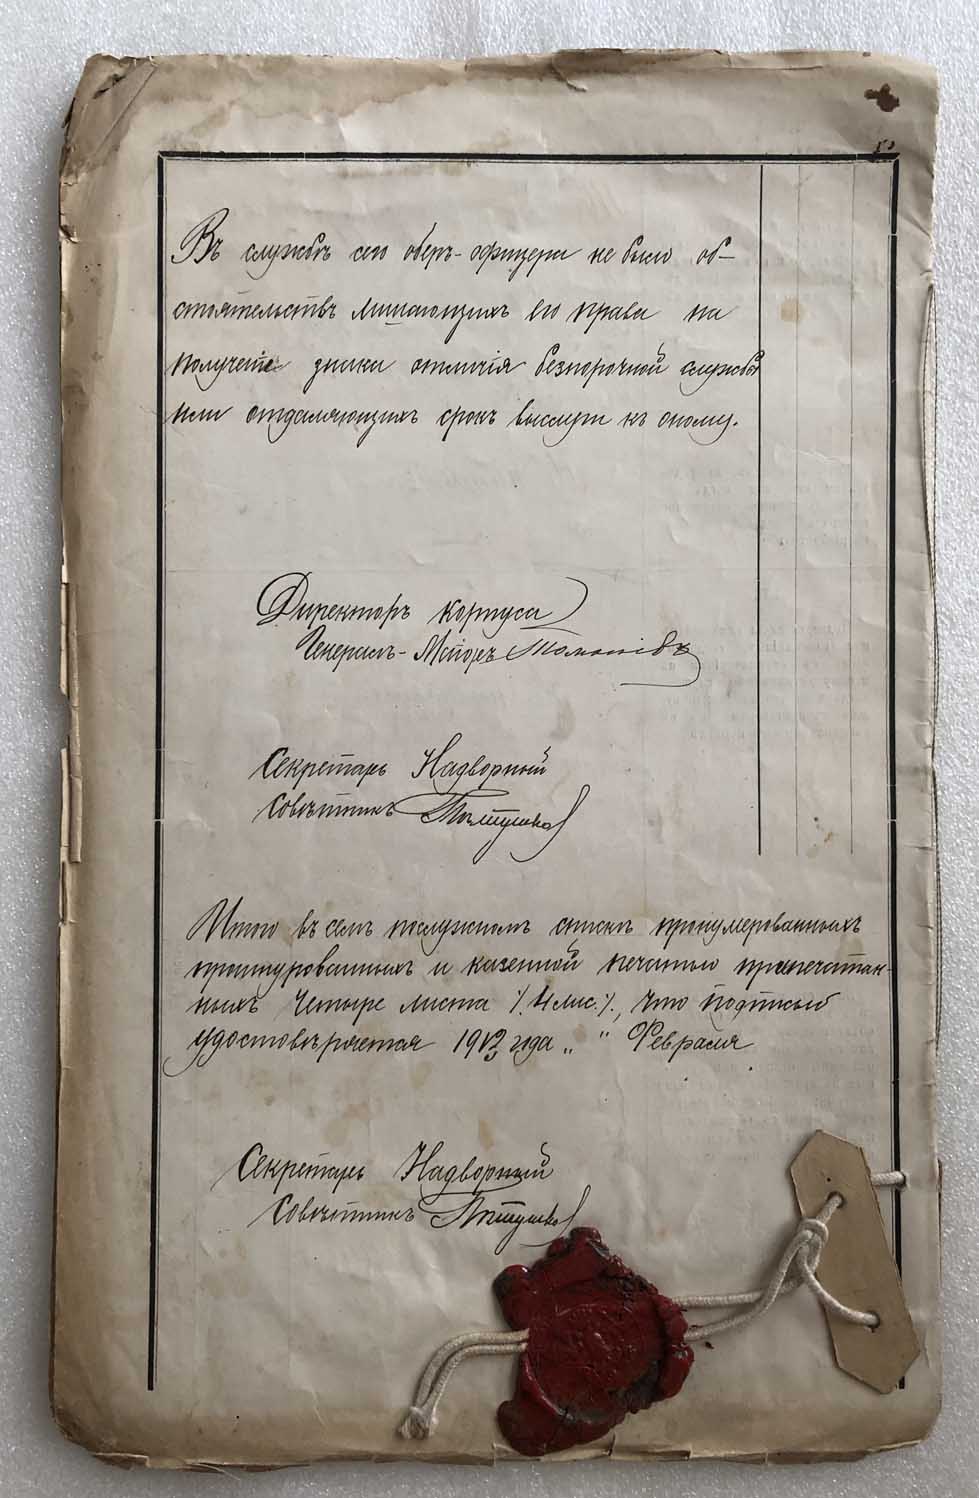 Въ службѣ сего оберъ-офицера не было об-
стоятельствъ лишающихъ его права на
полученіе знака отличія безпорочной службы
или отдаляющихъ срокъ выслуги къ оному.
Директоръ корпуса
Генералъ-Маіоръ
Секретарь Надворный
Совѣтникъ
Итого въ семъ послужномъ спискѣ пронумерованныхъ
прошнурованныхъ и казенной печатью припечатан-
ныхъ четыре листа ٪. 4 лис. ٪., что подписью
удостовѣряется 1912 года „ " Февраля
Секретарь Надворный
Совѣтникъ